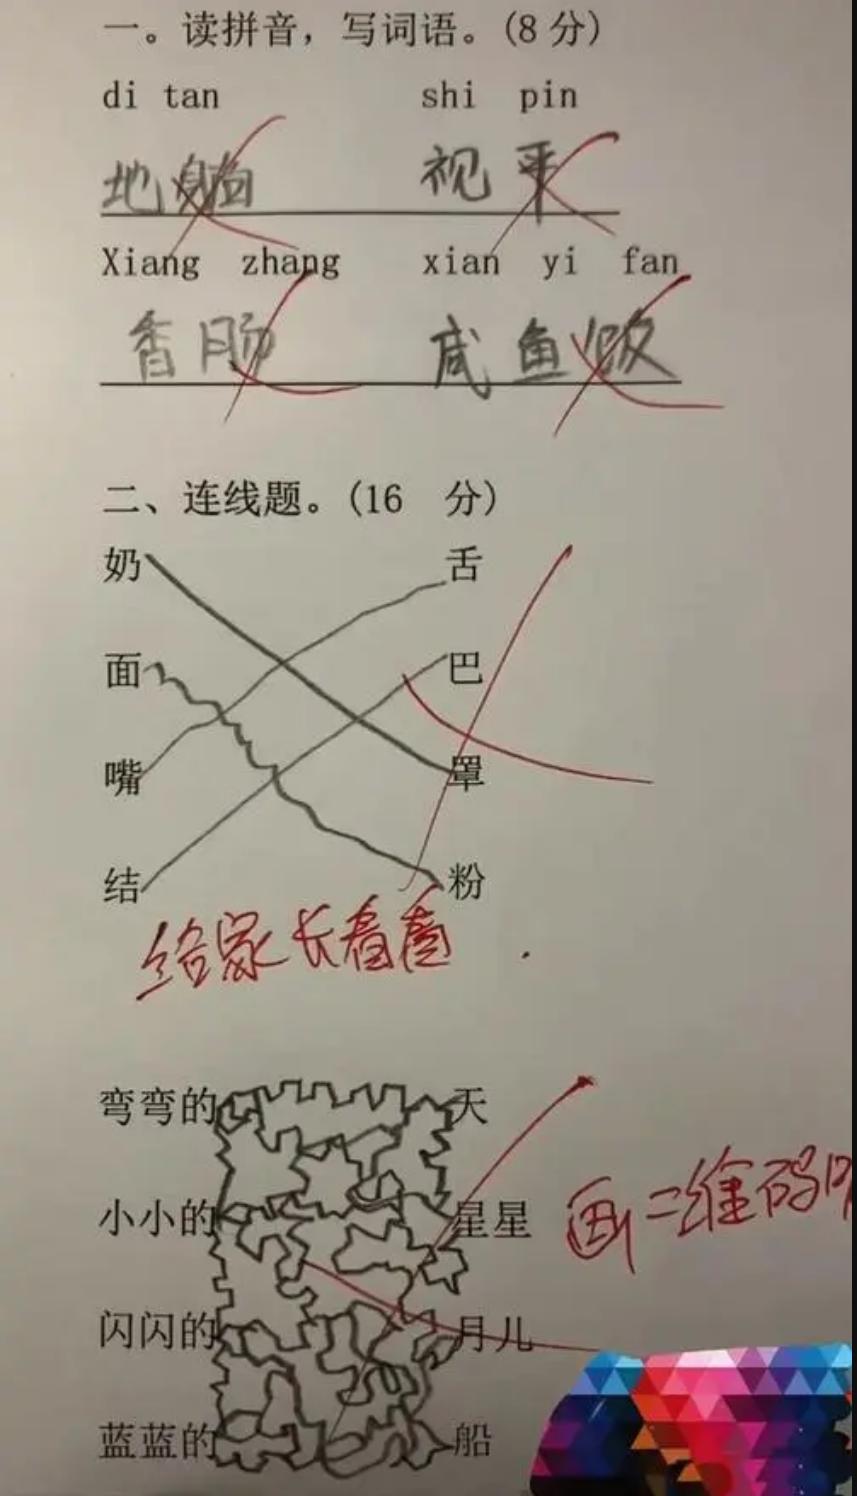 一。读拼音，写词语。(8 分)
di tan shi pin
地 视
Xiang zhang xian yi fan
香肠 咸鱼饭
二、连线题。(16 分)
奶 舌
面 巴
嘴 罩
结 粉
给家长看看
弯弯的 天
小小的 星星
画二维码
闪闪的 月儿
蓝蓝的 船